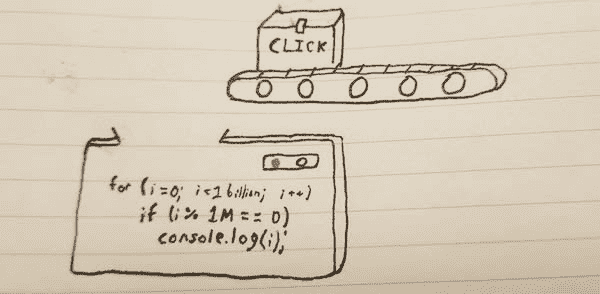 CLICK
for (i=0; i<1 billion; i++)
if (i % 1M == 0)
console.log(i);